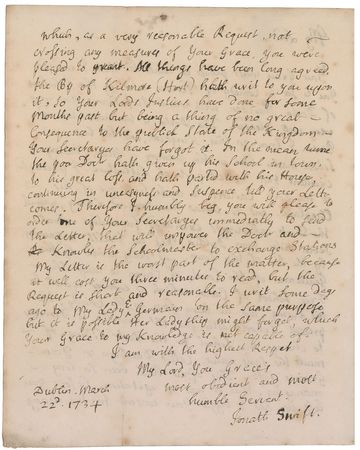 which, as a very reasonable Request, not
crossing any measures of Your Grace, you were
pleased to grant. All things have been long agreed,
the Bp of Kilmore (Hort) hath writ to you upon
it, So Your Lords Justices have done for Some
Months past but being a thing of no great
Consequence to the publick State of the Kingdom
Your Secretaryes have forgot it. In the mean time
the poor Doctr hath given up his School in town,
to his great loss, and hath parted with his House,
continuing in uneasyness and Suspence till your Letter
comes. Therefore I humbly beg you will please to
order one of Your Secretaryes immediatly to send
the Letter, that will empower the Doctr and
Knowles the Schoolmaster to exchange Stations
My Letter is the worst part of the matter, because
it will cost you three minutes to read, but the
Request is Short and reasonable. I writ some days
ago to My Lady Germain on the Same purpose,
but it is possible Her Ladyship might forget, which
Your Grace to my Knowledge is not capable of.
I am with the highest Respect
My Lord, Your Grace's
most obedient and most
humble Servant.
Jonath Swift.
Dublin. March
22d. 1734